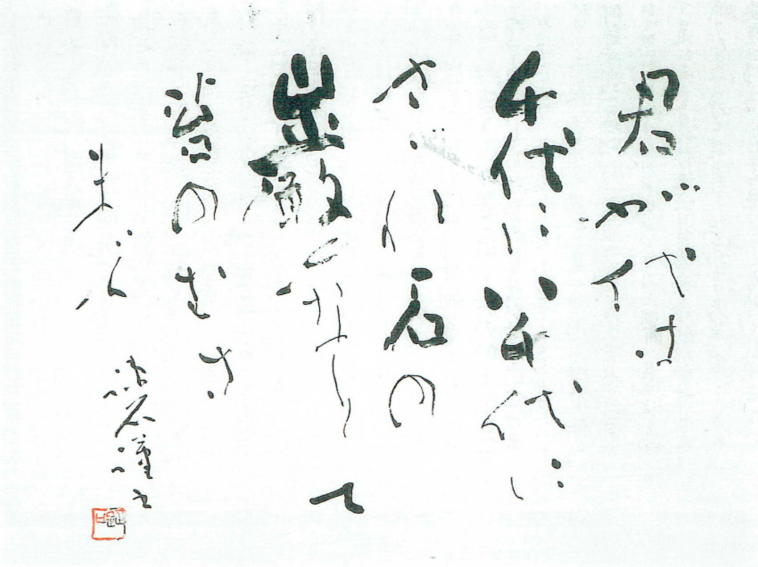 君が代は
千代に八千代に
さゞれ石の
巌となりて
苔のむす
まで